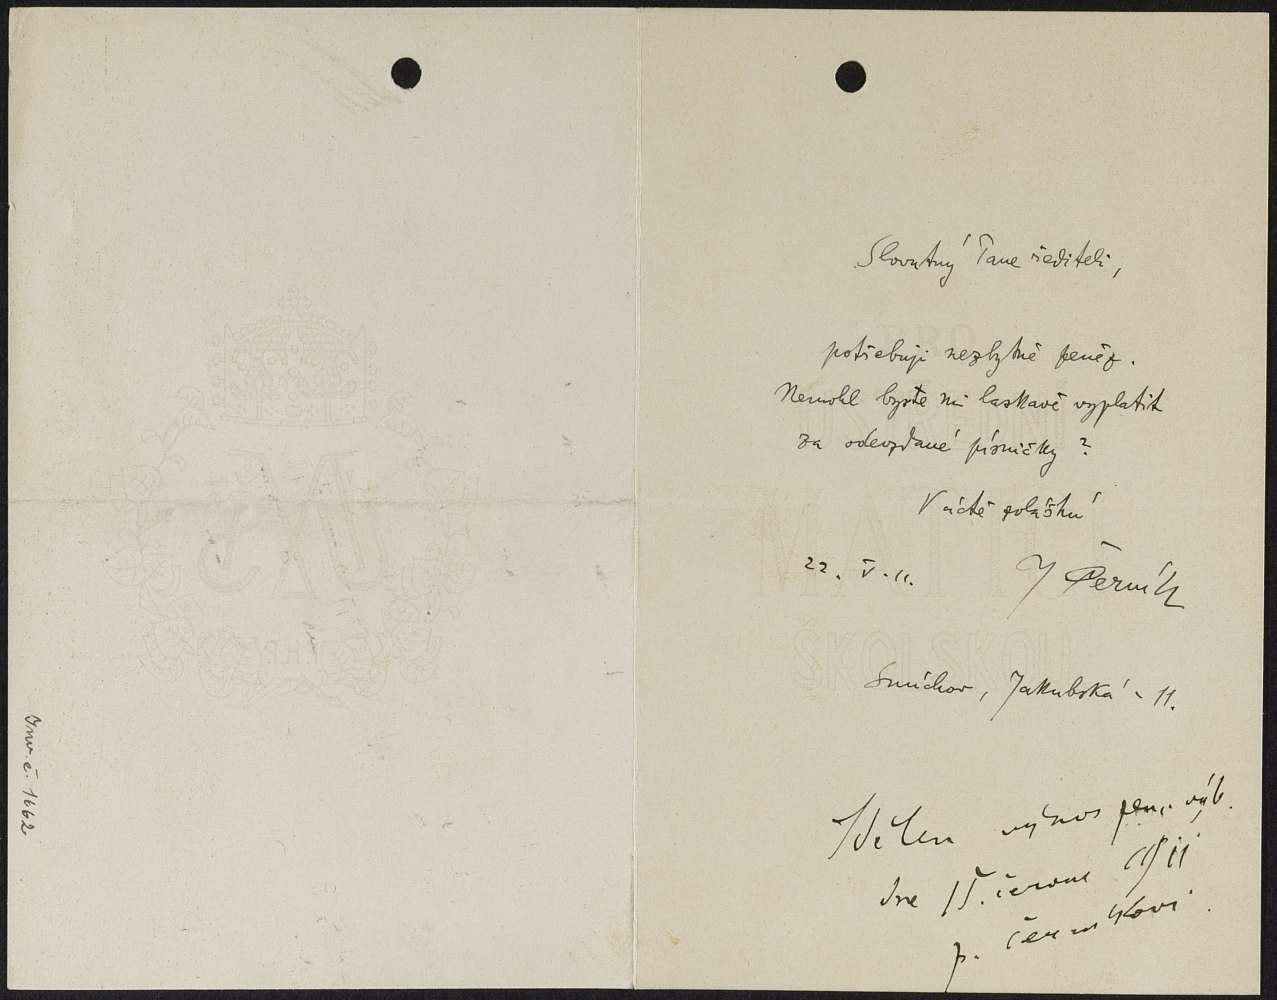 Slovutný Pane řediteli,
potřebuji nezbytně peněz.
Nemohl byste mi laskavě vyplatit
za odevzdané písničky?
V úctě zvláštní
22. V. 11. J Černík
Smíchov, Jakubská - 11.
Sdělen výnos pen. výb.
dne 15. června 1911
p. Černíkovi.
Inv. č. 1662
ÚSTŘEDNÍ
MATICI
ŠKOLSKOU